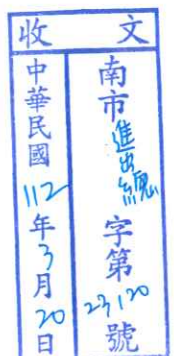 收文
南市進出總字第23120號
中華民國112年3月20日